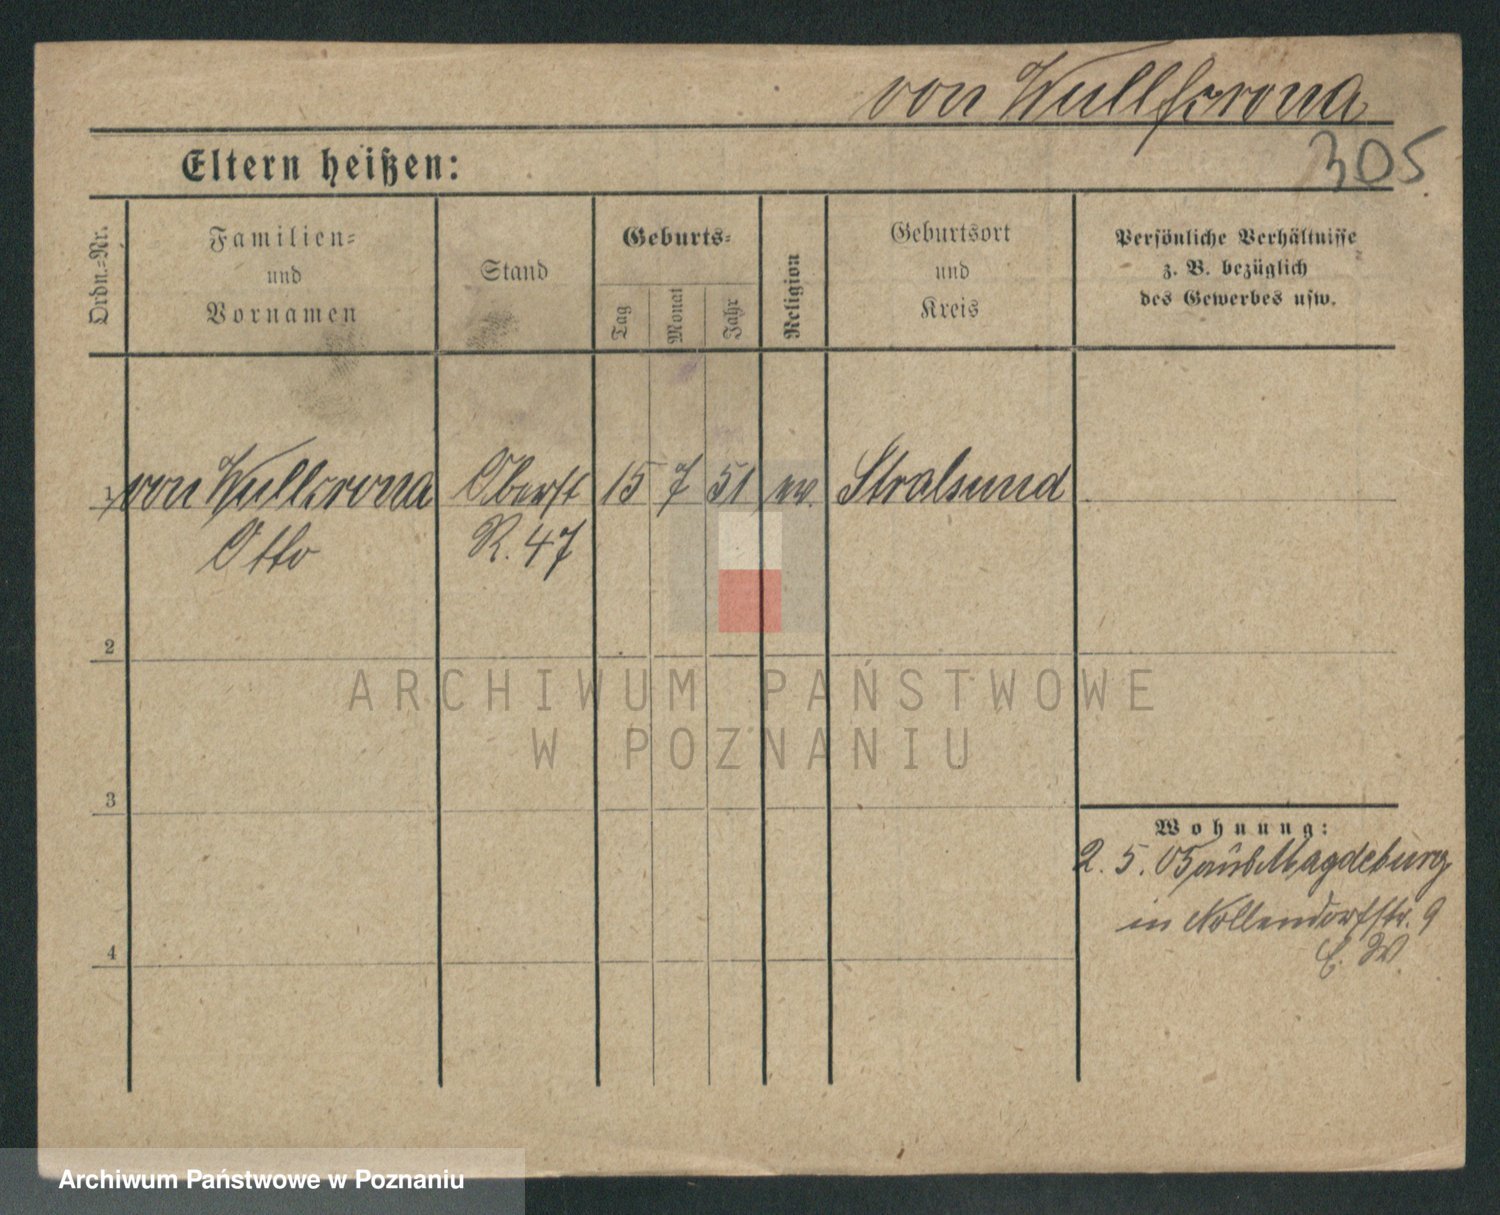 von Wullfcrona
305
Eltern heißen:
Ordn.-Nr.
Familien-
und
Vornamen
Stand
Geburts-
Tag
Monat
Jahr
Religion
Geburtsort
und
Kreis
Persönliche Verhältnisse
z. B. bezüglich
des Gewerbes usw.
1 von Wulfcrona Oberst 15 7 51 ev. Stralsund
Otto R. 47
2
3
4
Wohnung:
2. 5. 05 aus Magdeburg
in Nollendorfstr. 9
E. W.
ARCHIWUM PAŃSTWOWE
W POZNANIU
Archiwum Państwowe w Poznaniu